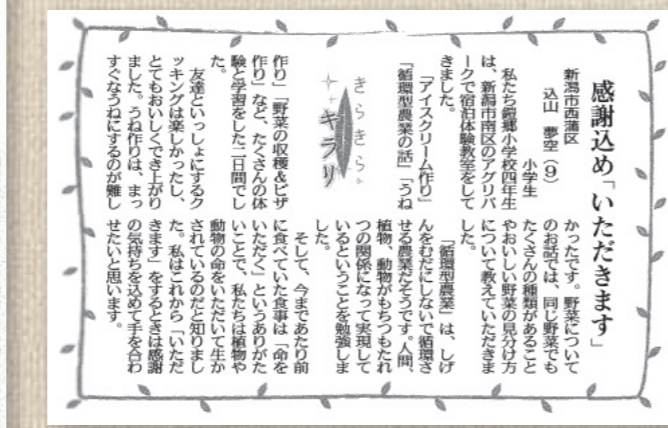 感謝込め「いただきます」
新潟市西蒲区
込山　夢空（9）
小学生
私たち鎧郷小学校四年生
は、新潟市南区のアグリパ
ークで宿泊体験教室をして
きました。
「アイスクリーム作り」
「循環型農業の話」「うね
きらきら
キラリ
作り」「野菜の収穫＆ピザ
作り」など、たくさんの体
験と学習をした二日間でし
た。
友達といっしょにするク
ッキングは楽しかったし、
とてもおいしくでき上がり
ました。うね作りは、まっ
すぐなうねにするのが難し
かったです。野菜について
のお話では、同じ野菜でも
たくさんの種類があること
やおいしい野菜の見分け方
について教えていただきま
した。
「循環型農業」は、しげ
んをむだにしないで循環さ
せる農業だそうです。人間、
植物、動物がもちつもたれ
つの関係になって実現して
いるということを勉強しま
した。
そして、今まであたり前
に食べていた食事は「命を
いただく」というありがた
いことで、私たちは植物や
動物の命をいただいて生か
されているのだと知りまし
た。私はこれから「いただ
きます」をするときは感謝
の気持ちを込めて手を合わ
せたいと思います。